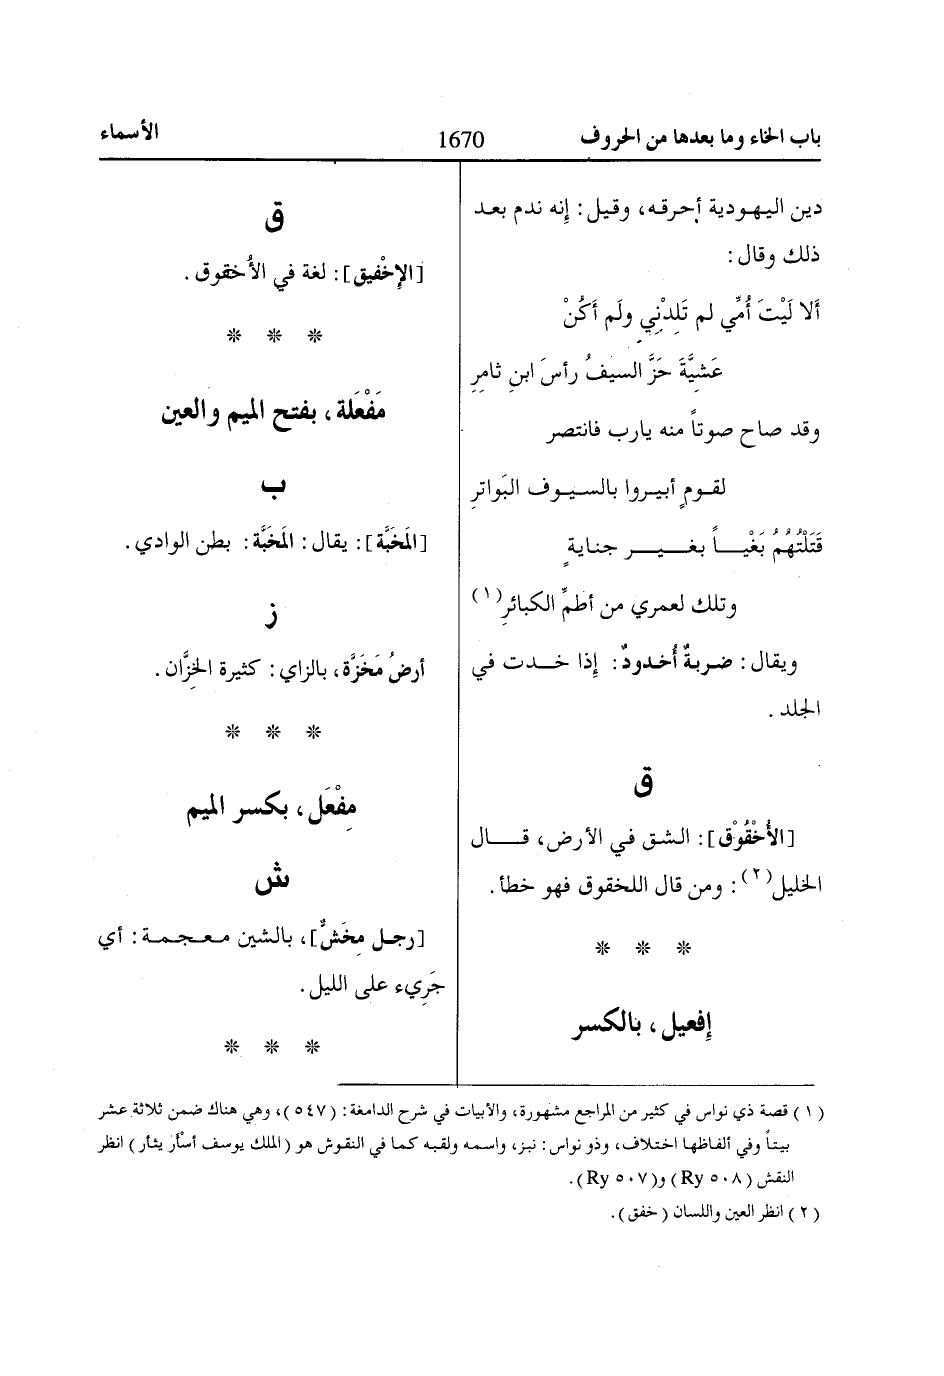 باب الخاء وما بعدها من الحروف 1670 الأسماء
دين اليهودية أحرقه، وقيل: إنه ندم بعد
ذلك وقال:
أَلا لَيْتَ أُمِّي لم تَلِدْنِي ولَم أَكُنْ
عَشِيَّةَ حَزَّ السيفُ رأسَ ابنِ ثامِرِ
وقد صاح صوتاً منه يارب فانتصر
لقومٍ أبيروا بالسيوف البَواترِ
قَتَلْتُهُمُ بَغْياً بغير جنايةٍ
وتلك لعمري من أطمِّ الكبائرِ(١)
ويقال: ضربةٌ أُخدودٌ: إذا خدت في
الجلد.
ق
[الأُخْقُوْق]: الشق في الأرض، قال
الخليل(٢): ومن قال اللخقوق فهو خطأ.
* * *
إفعيل، بالكسر
ق
[الإخْفيق]: لغة في الأُخقوق.
* * *
مَفْعَلة، بفتح الميم والعين
ب
[المَخَبَّة]: يقال: المَخَبَّة: بطن الوادي.
ز
أرضُ مَخَزَّة، بالزاي: كثيرة الخِزَّان.
* * *
مِفْعَل، بكسر الميم
ش
[رجل مِخَشٌّ]، بالشين معجمة: أي
جَرِيء على الليل.
* * *
(١) قصة ذي نواس في كثير من المراجع مشهورة، والأبيات في شرح الدامغة: (٥٤٧)، وهي هناك ضمن ثلاثة عشر
بيتاً وفي ألفاظها اختلاف، وذو نواس: نبز، واسمه ولقبه كما في النقوش هو (الملك يوسف أسأر يثأر) انظر
النقش (Ry ٥٠٨) و(Ry ٥٠٧).
(٢) انظر العين واللسان (خفق).